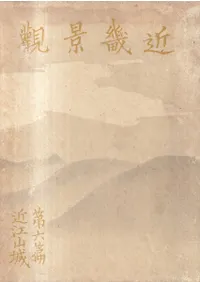 近畿景觀
第六編
近江山城